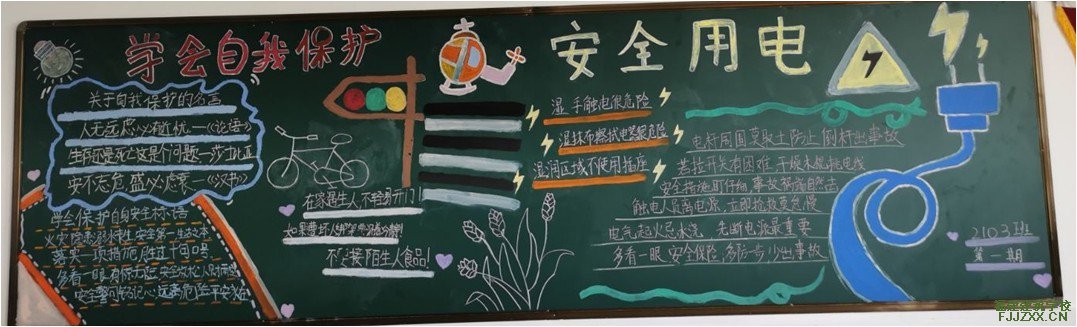 学会自我保护
安全用电
关于自我保护的名言
人无远虑必有近忧—《论语》
生存还是死亡这是个问题—莎士比亚
安不忘危,盛必虑衰—《汉书》
学会保护自身安全标语
安全第一生
落实一项措施,胜过十句口号
多看一眼
安全警句铭记心 远离危险平安在
在家遇生人 不轻易开门!
如果遭坏人绑架
不接陌生人食品!
湿手触电很危险
湿抹布擦拭电器很危险
湿润区域不使用插座
电杆周围莫取土防止倒杆出事故
若拉开关有困难,干燥木棍挑电线
安全措施
触电人员离电源,立即抢救莫怠慢
电气起火忌水浇 先断电源最重要
多看一眼,安全保险,多防一步,少出事故
2103班
第一期
FJJZXX.CN